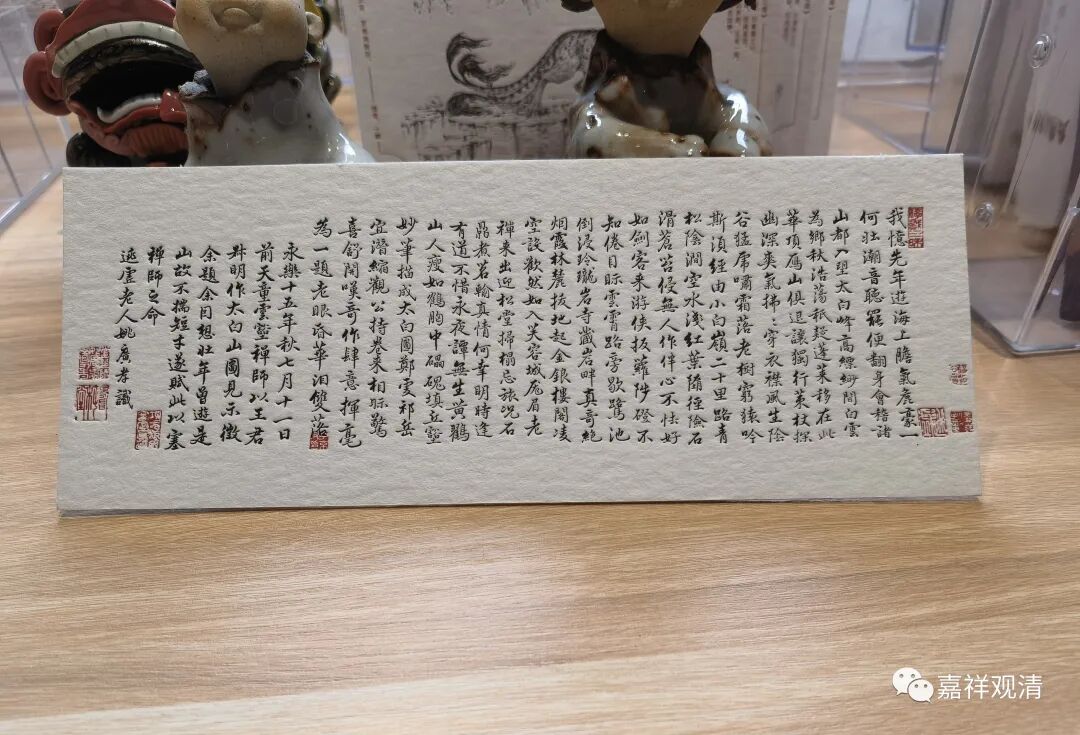 我憶先年遊海上膽氣麤豪一
何壯潮音聽罷便翻身會稽諸
山都入望太白峰高縹緲間白雲
為鄉秋浩蕩秪疑蓬萊移在此
華頂鴈山俱退讓獨行策杖探
幽深爽氣拂拂穿衣襟風生陰
谷猛虎嘯霜落老樹窮猿吟
斯湏經由小白嶺二十里路青
松陰澗空水淺紅葉隨徑險石
滑蒼苔侵無人作伴心不怯好
如劍客来游俠扳蘿陟磴不
知倦目眎雲霄路旁歇鷺池
倒浸玲瓏岩寺藏岩畔真奇絕
烟霞林麓拔地起金銀樓閣凌
空設歡然如入芙容城厖眉老
禪来出迎松堂掃榻忘旅況石
鼎煮茗輸真情何幸明時逢
有道不惜永夜譚無生黃鶴
山人瘦如鶴胸中磊磈填丘壑
妙筆描成太白圖鄭雯祁岳
宜潛縮觀公持卷来相眎驚
喜舒開嘆奇作肆意揮毫
為一題老眼昏華泪雙落
永樂十五年秋七月十一日
前天童雪壑禪師以王君
叔明作太白山圖見示徵
余題余目想壯年曾遊是
山故不揣短才遂賦此以塞
禪師之命
逃虛老人姚廣孝識
嘉祥观清